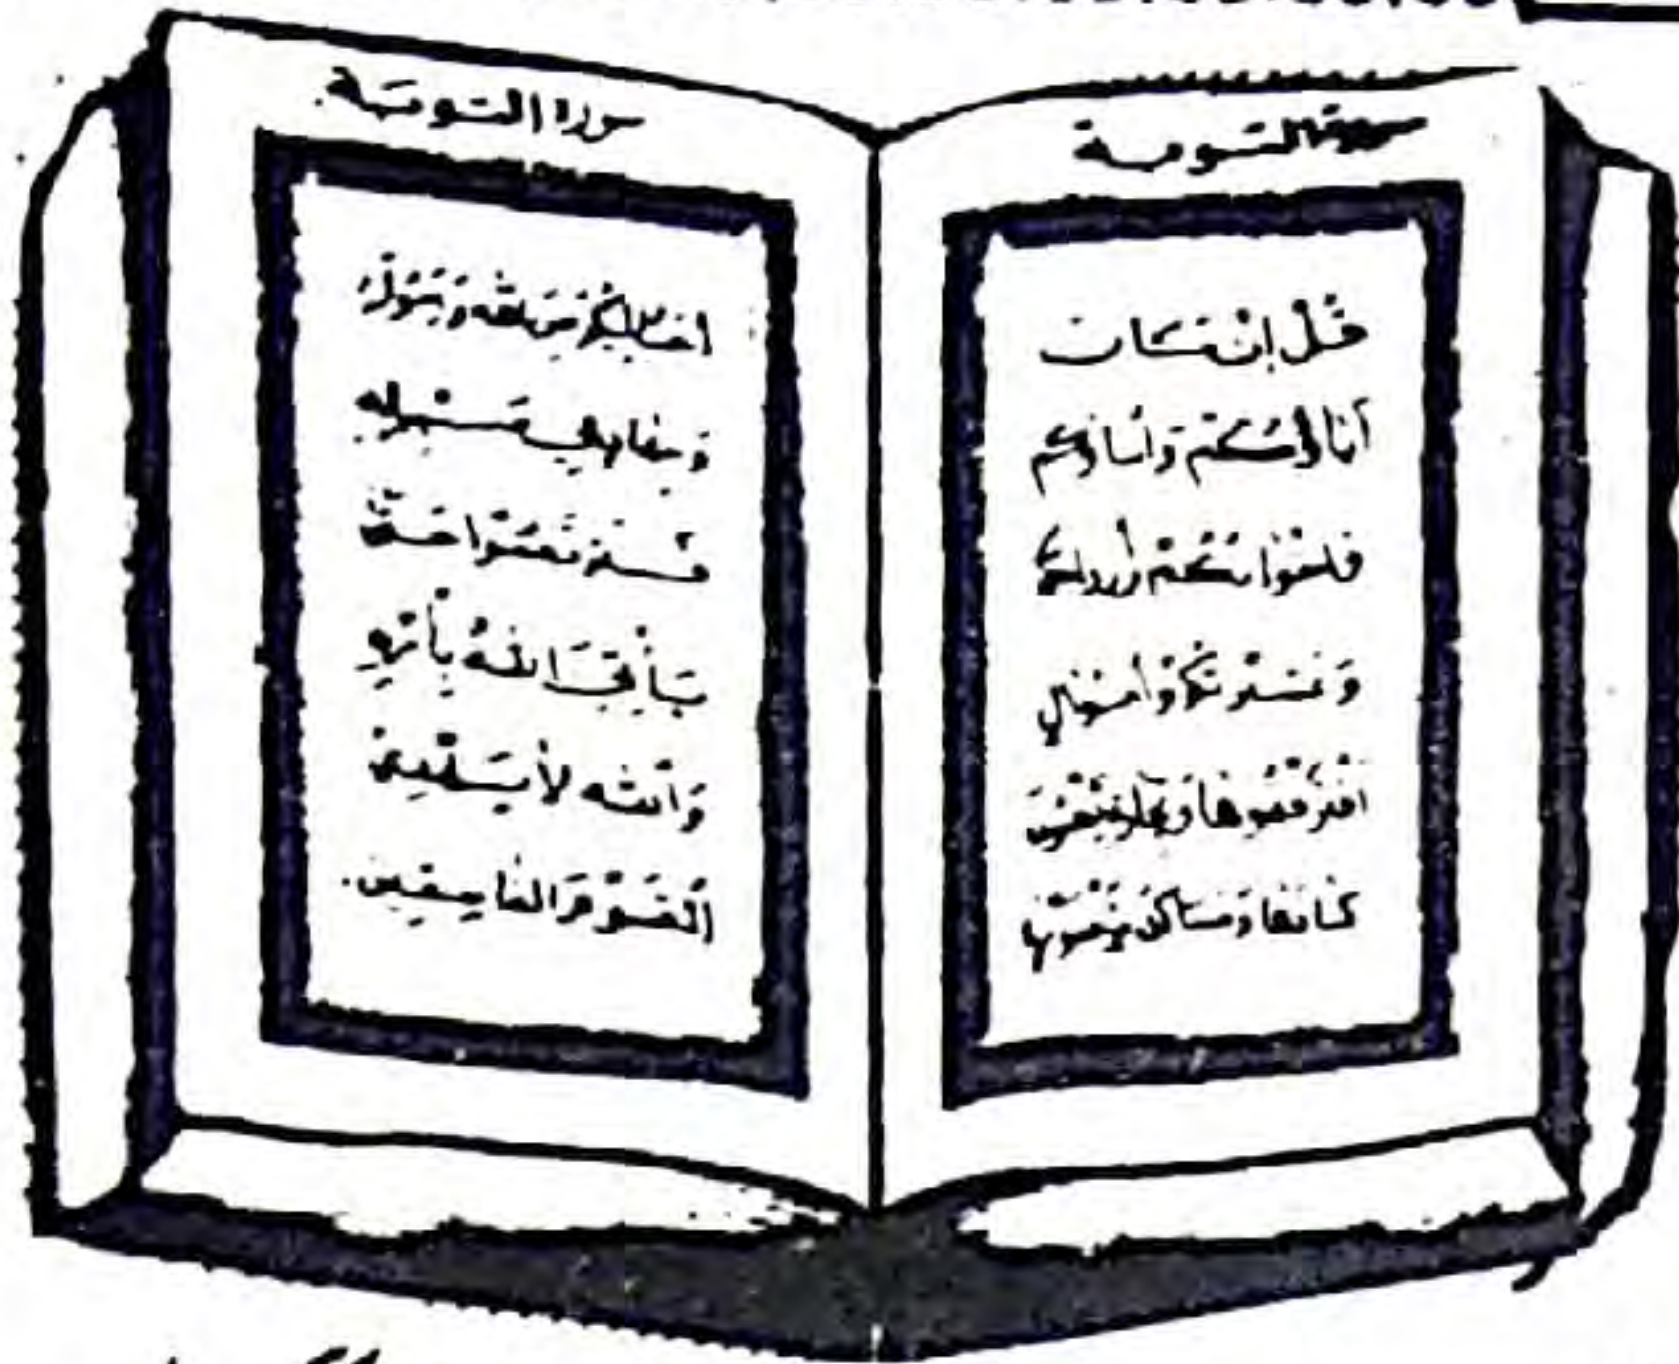 سورة التوبة
قُلْ إِنْ كَانَ
آبَاؤُكُمْ وَأَبْنَاؤُكُمْ
وَإِخْوَانُكُمْ وَأَزْوَاجُكُمْ
وَعَشِيرَتُكُمْ وَأَمْوَالٌ
اقْتَرَفْتُمُوهَا وَتِجَارَةٌ تَخْشَوْنَ
كَسَادَهَا وَمَسَاكِنُ تَرْضَوْنَهَا
سورة التوبة
أَحَبَّ إِلَيْكُمْ مِنَ اللَّهِ وَرَسُولِهِ
وَجِهَادٍ فِي سَبِيلِهِ
فَتَرَبَّصُوا حَتَّى
يَأْتِيَ اللَّهُ بِأَمْرِهِ
وَاللَّهُ لَا يَهْدِي
الْقَوْمَ الْفَاسِقِينَ.